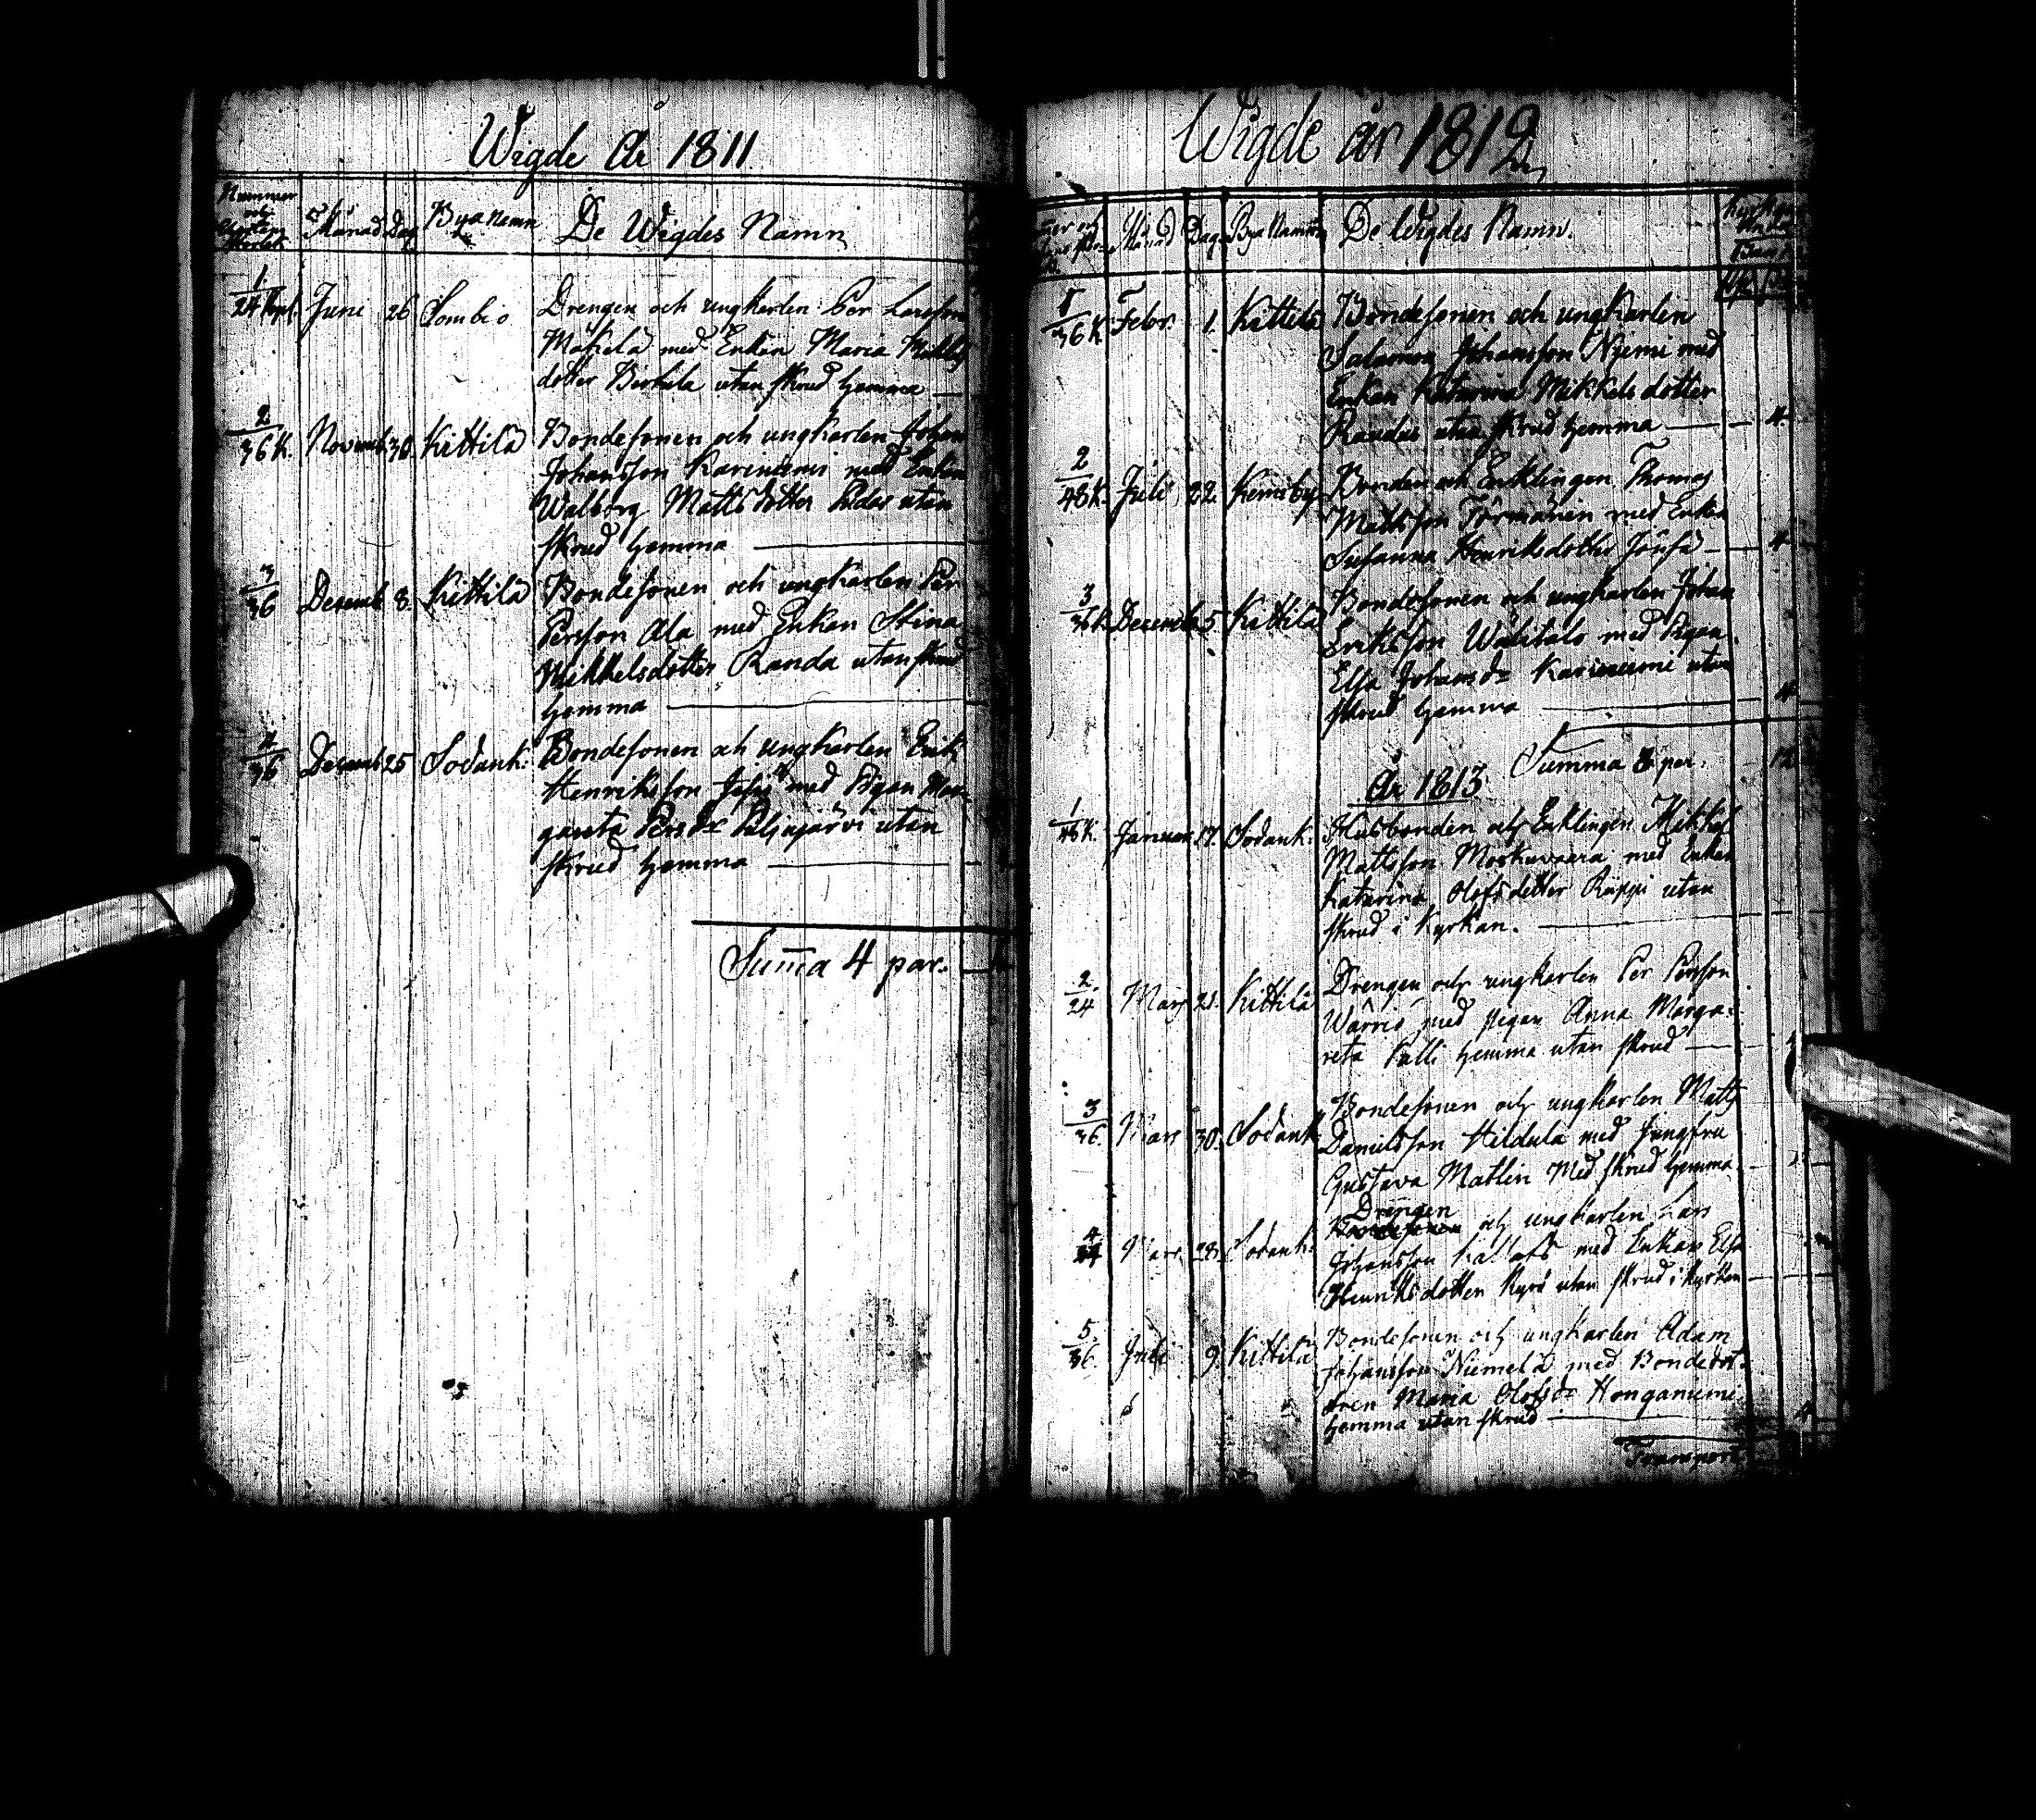 Wigde År 1811
Nummer och
Månad Dag Bya Namn De Wigdes Namn
1/24 kopl. Juni 26 Sombio Drengen och ungkarlen Per Larsson
Mäkelä med Enkan Maria
dotter utan skrud hemma
2/36 K. Novemb 30. Kittilä Bondesonen och ungkarlen Johan
Johansson Kariniemi med Enkan
Walborg Mattsdotter utan
skrud hemma
3/36 Decemb 8. Kittilä Bondesonen och ungkarlen Per
Persson Ala med Enkan Stina
Mikkelsdotter Randa utan skrud
hemma
4/36 Decemb 25 Sodank: Bondesonen och ungkarlen Erik
Henriksson med Pigan Mar-
gareta Persdr Puljujärvi utan
skrud hemma
Suma 4 par.
Wigde år 1812
Månad Dag Bya Namn De Wigdes Namn.
1/36 K. Febr. 1. Kittilä Bondesonen och ungkarlen
Salomon Johansson Niemi med
Enkan Katarina Mikkelsdotter
Randa utan skrud hemma 4.
2/48 K. Juli 22. Kemiby Bonden och Enklingen Thomas
Mattsson Törmänen med Enkan
Susanna Henriksdotter 4
3/36 K. Decemb 5. Kittilä Bondesonen och ungkarlen Johan
Eriksson Wälitalo med Pigan
Elsa Johansdr Kariniemi utan
skrud hemma 4
Summa 3 par. 12
År 1813
1/48 K. Januari 17. Sodank: Husbonden och Enklingen Mikkel
Mattsson Moskuvaara med Enkan
Katarina Olofsdotter utan
skrud i Kyrkan.
2/24 Mars 21. Kittilä Drengen och ungkarlen Per Persson
Warrio med pigan Anna Marga-
reta Palli hemma utan skrud
3/36. Mars 30. Sodank: Bondesonen och ungkarlen Matts
Danielsson Hildula med Jungfru
Gustava Matlin Med skrud hemma
Drengen
4/24 Mars 28. Sodank: Bondesonen och ungkarlen Lars
Johansson med Enkan Elsa
Henriksdotter Kyrö utan skrud i kyrkan
5/36. Juli 9 Kittilä Bondesonen och ungkarlen Adam
Johansson Niemelä med Bondedot-
tren Maria Olofsdr Honganiemi
hemma utan skrud 4
Transport